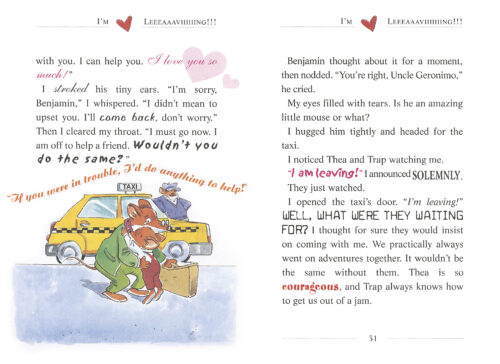 I'm Leeeaaaviiiiiing!!!
with you. I can help you. I love you so
much!"
I stroked his tiny ears. "I'm sorry,
Benjamin," I whispered. "I didn't mean to
upset you. I'll come back, don't worry."
Then I cleared my throat. "I must go now. I
am off to help a friend. Wouldn't you
do the same?"
"If you were in trouble, I'd do anything to help!"
TAXI
I'm Leeeaaaviiiiiing!!!
Benjamin thought about it for a moment,
then nodded. "You're right, Uncle Geronimo,"
he cried.
My eyes filled with tears. Is he an amazing
little mouse or what?
I hugged him tightly and headed for the
taxi.
I noticed Thea and Trap watching me.
"I am leaving!" I announced SOLEMNLY.
They just watched.
I opened the taxi's door. "I'm leaving!"
WELL, WHAT WERE THEY WAITING
FOR? I thought for sure they would insist
on coming with me. We practically always
went on adventures together. It wouldn't be
the same without them. Thea is so
courageous, and Trap always knows how
to get us out of a jam.
31